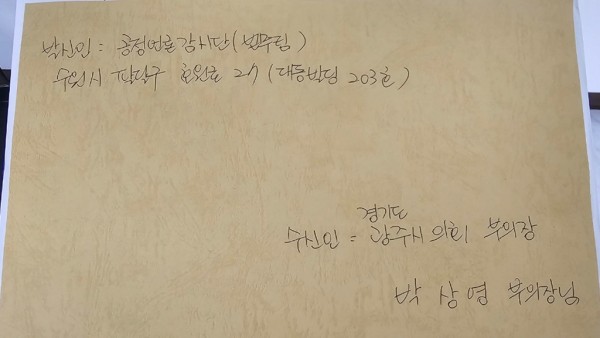 발신인 : 공정언론 감시단 (법무팀)
수원시 팔달구 효원로 27 (대동빌딩 203호)
경기도
수신인 : 광주시 의회 부의장
박 상 영 부의장님